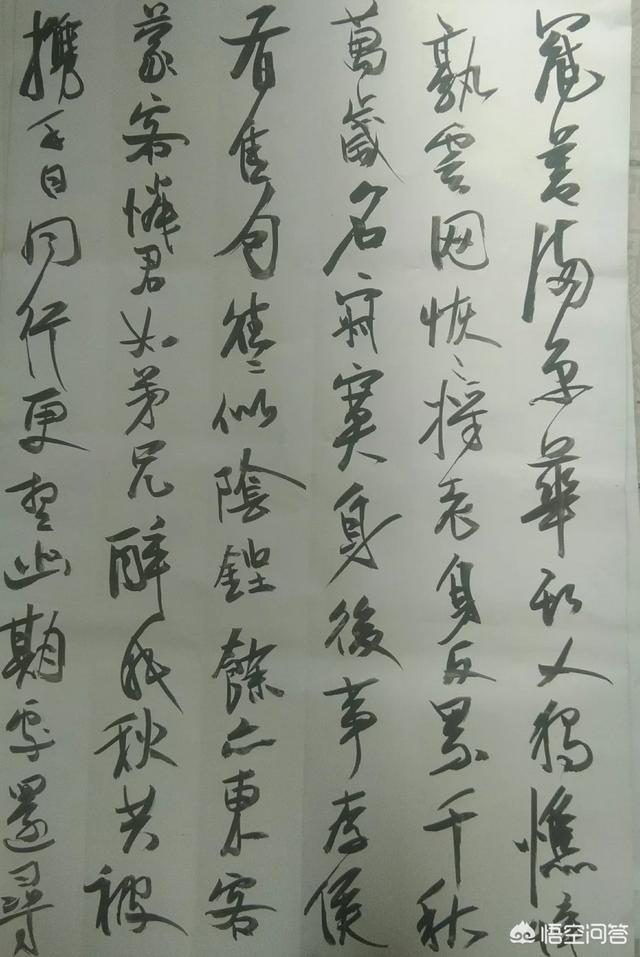 冠蓋滿京華斯人獨憔悴
孰雲网恢〻將老身反累千秋
萬歲名寂寞身後事李侯
有佳句往〻似陰鏗餘亦東客
蒙客憐君如弟兄醉眠秋共被
攜手日同行更想幽期處還尋
悟空问答